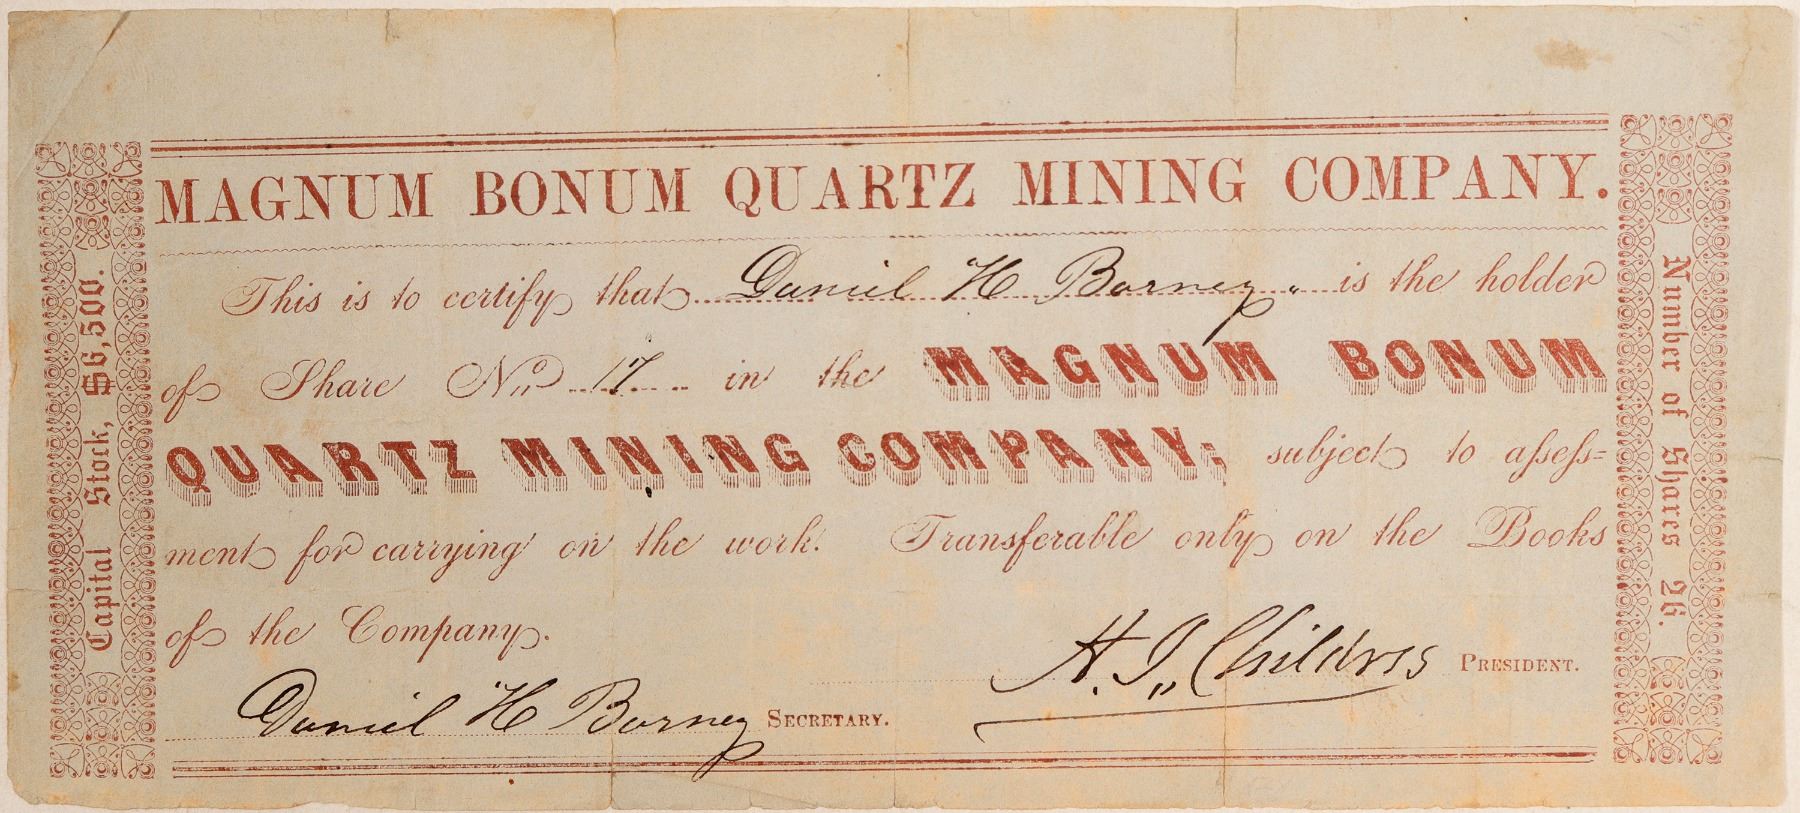 MAGNUM BONUM QUARTZ MINING COMPANY.
This is to certify that Daniel H Barney is the holder
of Share No. 17 in the MAGNUM BONUM
QUARTZ MINING COMPANY; subject to assess=
ment for carrying on the work. Transferable only on the Books
of the Company.
H. J. Childress PRESIDENT.
Daniel H Barney SECRETARY.
Capital Stock, $6,500.
Number of Shares 26.